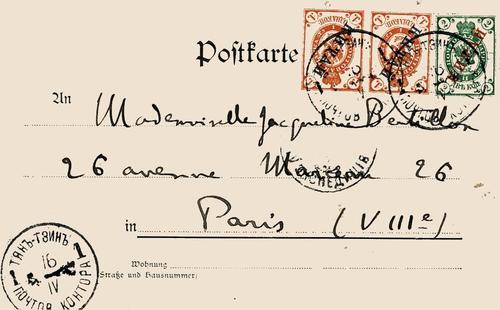 Postkarte
КИТАЙ КИТАЙ КИТАЙ
An Mademoiselle Jacqueline Bertillon
26 avenue 26
in Paris (VIIIe)
Wohnung
(Straße und Hausnummer)
ТЯНЬ-ТЗИНЪ
16
IV
ПОЧТОВ. КОНТОРА